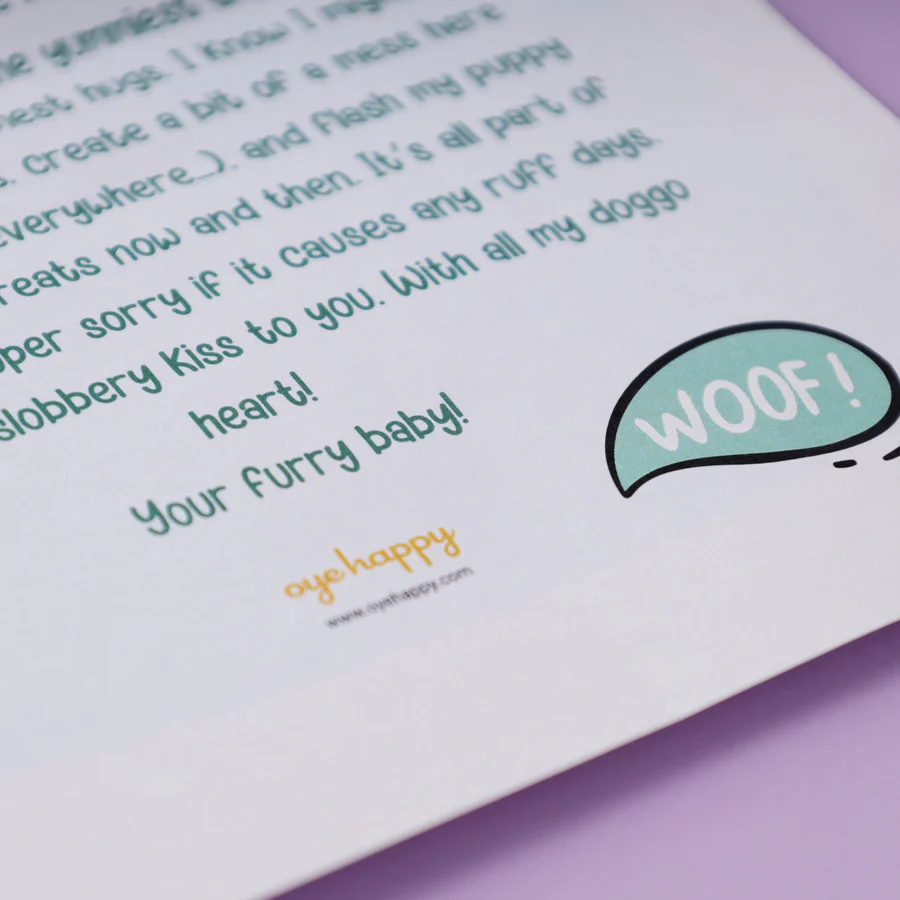 he yummiest
hugs. I know I
create a bit of a mess here
everywhere...), and flash my puppy
now and then. It's all part of
sorry if it causes any ruff days.
slobbery kiss to you. With all my doggo
heart!
Your furry baby!
WOOF!
oye happy
www.oyehappy.com